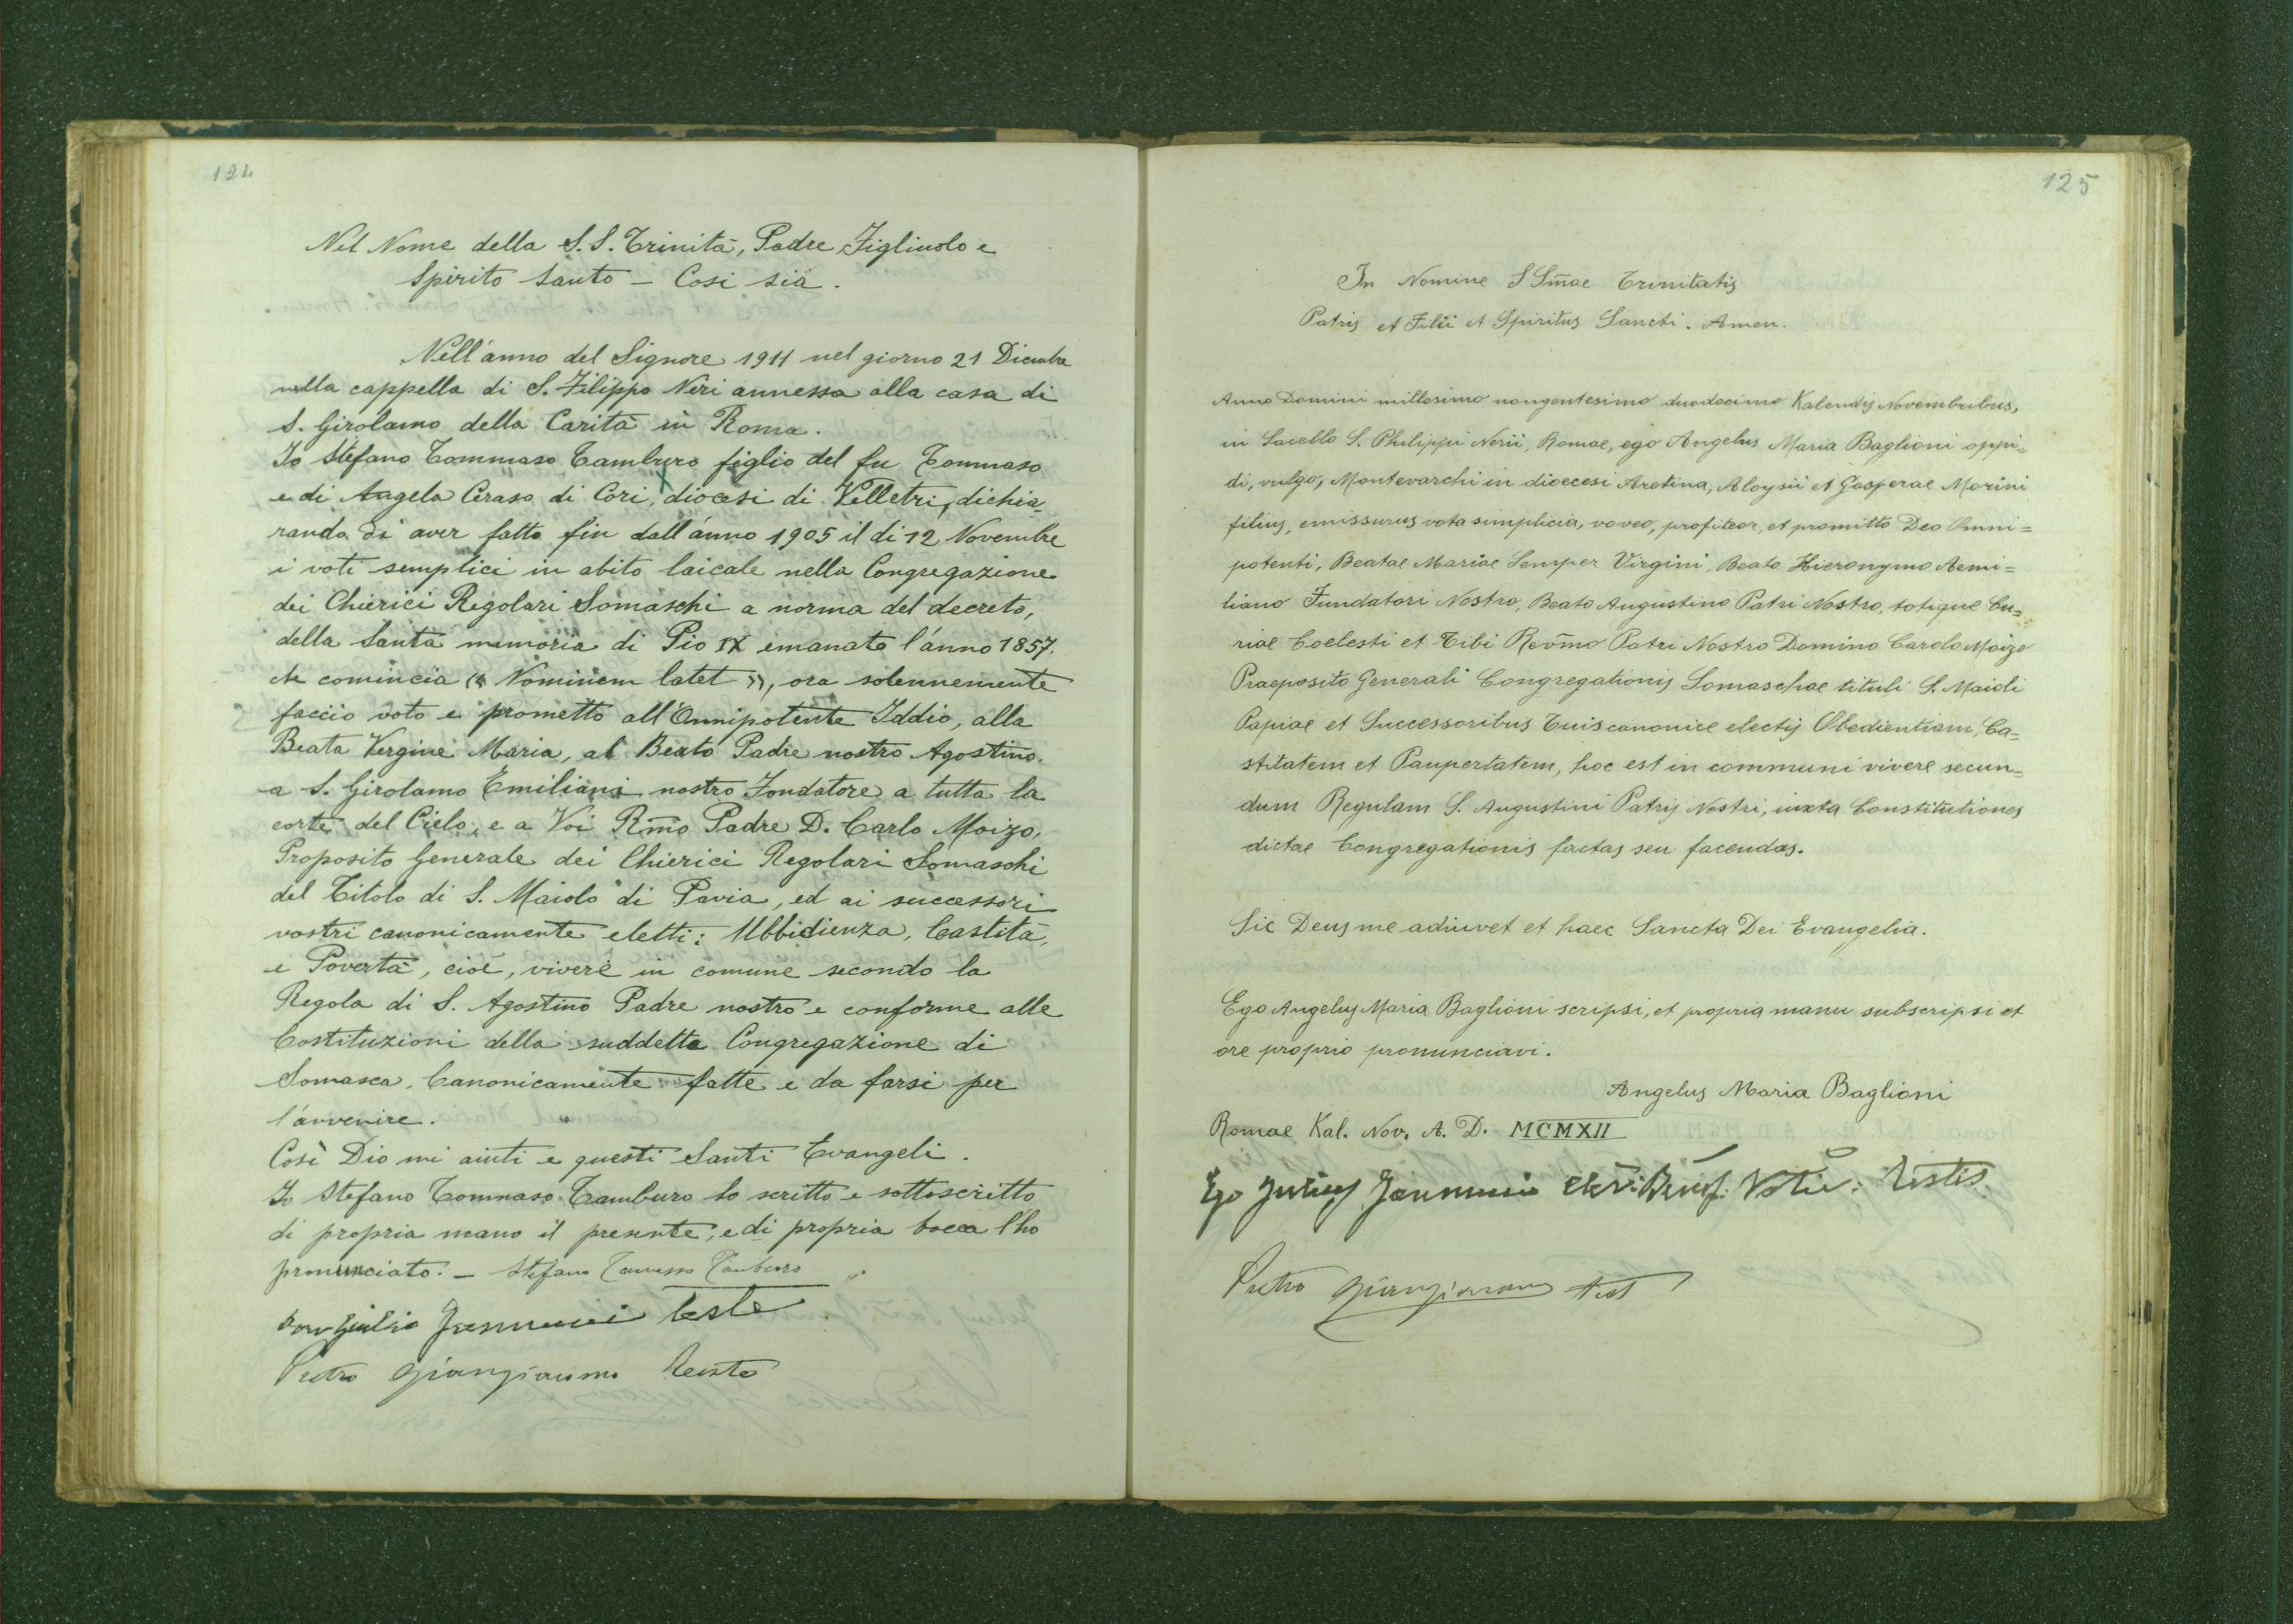 124
Nel Nome della S.S. Trinità, Padre, Figliuolo e
Spirito Santo – Cosi sia.
Nell'anno del Signore 1911 nel giorno 21 Dicembre
nella cappella di S. Filippo Neri annessa alla casa di
S. Girolamo della Carità in Roma.
Io Stefano Tommaso Tamburo figlio del fu Tommaso
e di Angela Ceraso di Cori, diocesi di Velletri, dichia-
rando di aver fatto fin dall'anno 1905 il di 12 Novembre
i voti semplici in abito laicale nella Congregazione
dei Chierici Regolari Somaschi a norma del decreto,
della Santa memoria di Pio IX emanato l'anno 1857.
che comincia « Neminem latet », ora solennemente
faccio voto e prometto all'Onnipotente Iddio, alla
Beata Vergine Maria, al Beato Padre nostro Agostino.
a S. Girolamo Emiliani nostro Fondatore a tutta la
corte del Cielo, e a Voi Rm̃o Padre D. Carlo Moizo,
Proposito Generale dei Chierici Regolari Somaschi
del Titolo di S. Maiolo di Pavia, ed ai successori
vostri canonicamente eletti: Ubbidienza, Castità,
e Povertà, cioè, vivere in comune secondo la
Regola di S. Agostino Padre nostro e conforme alle
Costituzioni della suddetta Congregazione di
Somasca. Canonicamente fatte e da farsi per
l'avvenire.
Così Dio mi aiuti e questi Santi Evangeli.
Io Stefano Tommaso Tamburo ho scritto e sottoscritto
di propria mano il presente, e di propria bocca l'ho
pronunciato. – Stefano Tommaso Tamburo
Don Giulio Jannucci teste
Pietro Giangiacomo Teste
125
In Nomine S Sm̃ae Trinitatis
Patris et Filii et Spiritus Sancti. Amen.
Anno Domini millesimo nongentesimo duodecimo Kalendis Novembribus,
in Sacello S. Philippi Nerii, Romae, ego Angelus Maria Baglioni oppi=
di, vulgo, Montevarchi in dioecesi Aretina, Aloysii et Gasperae Morini
filius, emissurus vota simplicia, voveo, profiteor, et promitto Deo Omni=
potenti, Beatae Mariae Semper Virgini, Beato Hieronymo Aemi=
liano Fundatori Nostro, Beato Augustino Patri Nostro, totique Cu=
riae Coelesti et Tibi Rev̄mo Patri Nostro Domino Carolo Moizo
Praeposito Generali Congregationis Somaschae tituli S. Maioli
Papiae et Successoribus Tuis canonice electis Obedientiam, Ca=
stitatem et Paupertatem, hoc est in communi vivere secun=
dum Regulam S. Augustini Patris Nostri, iuxta Constitutiones
dictae Congregationis factas seu faciendas.
Sic Deus me adiuvet et haec Sancta Dei Evangelia.
Ego Angelus Maria Baglioni scripsi, et propria manu subscripsi et
ore proprio pronunciavi.
Angelus Maria Baglioni
Romae Kal. Nov. A. D. MCMXII
Ego Julius Jannucci Testis
Pietro Giangiacomo test